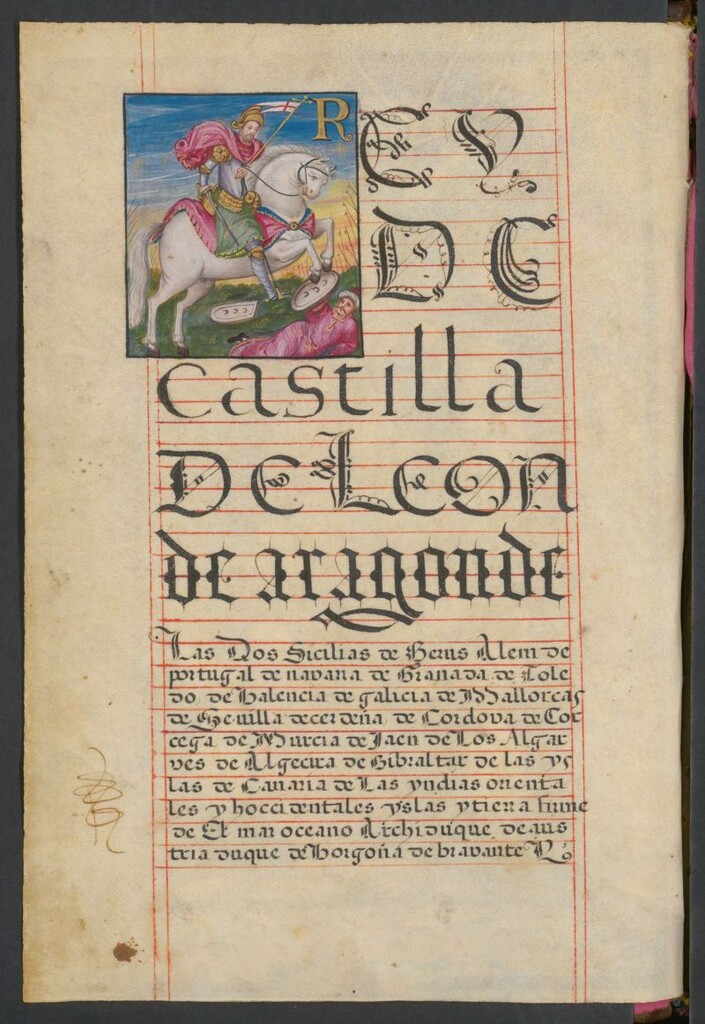 R EY
DE
castilla
DE LEON
de aragon de
Las Dos Sicilias de Herus Alem de
portugal de navarra de Granada de Tole
do de Valencia de galicia de Mallorcas
de Sevilla de cerdeña de Cordova de Cor
cega de Murcia de Jaen de Los Algar
ves de Algecira de Gibraltar de las ys
las de Canaria de Las yndias orienta
les y hoccidentales yslas y tierra firme
de El mar oceano Archiduque de aus
tria duque de Borgoña de bravante